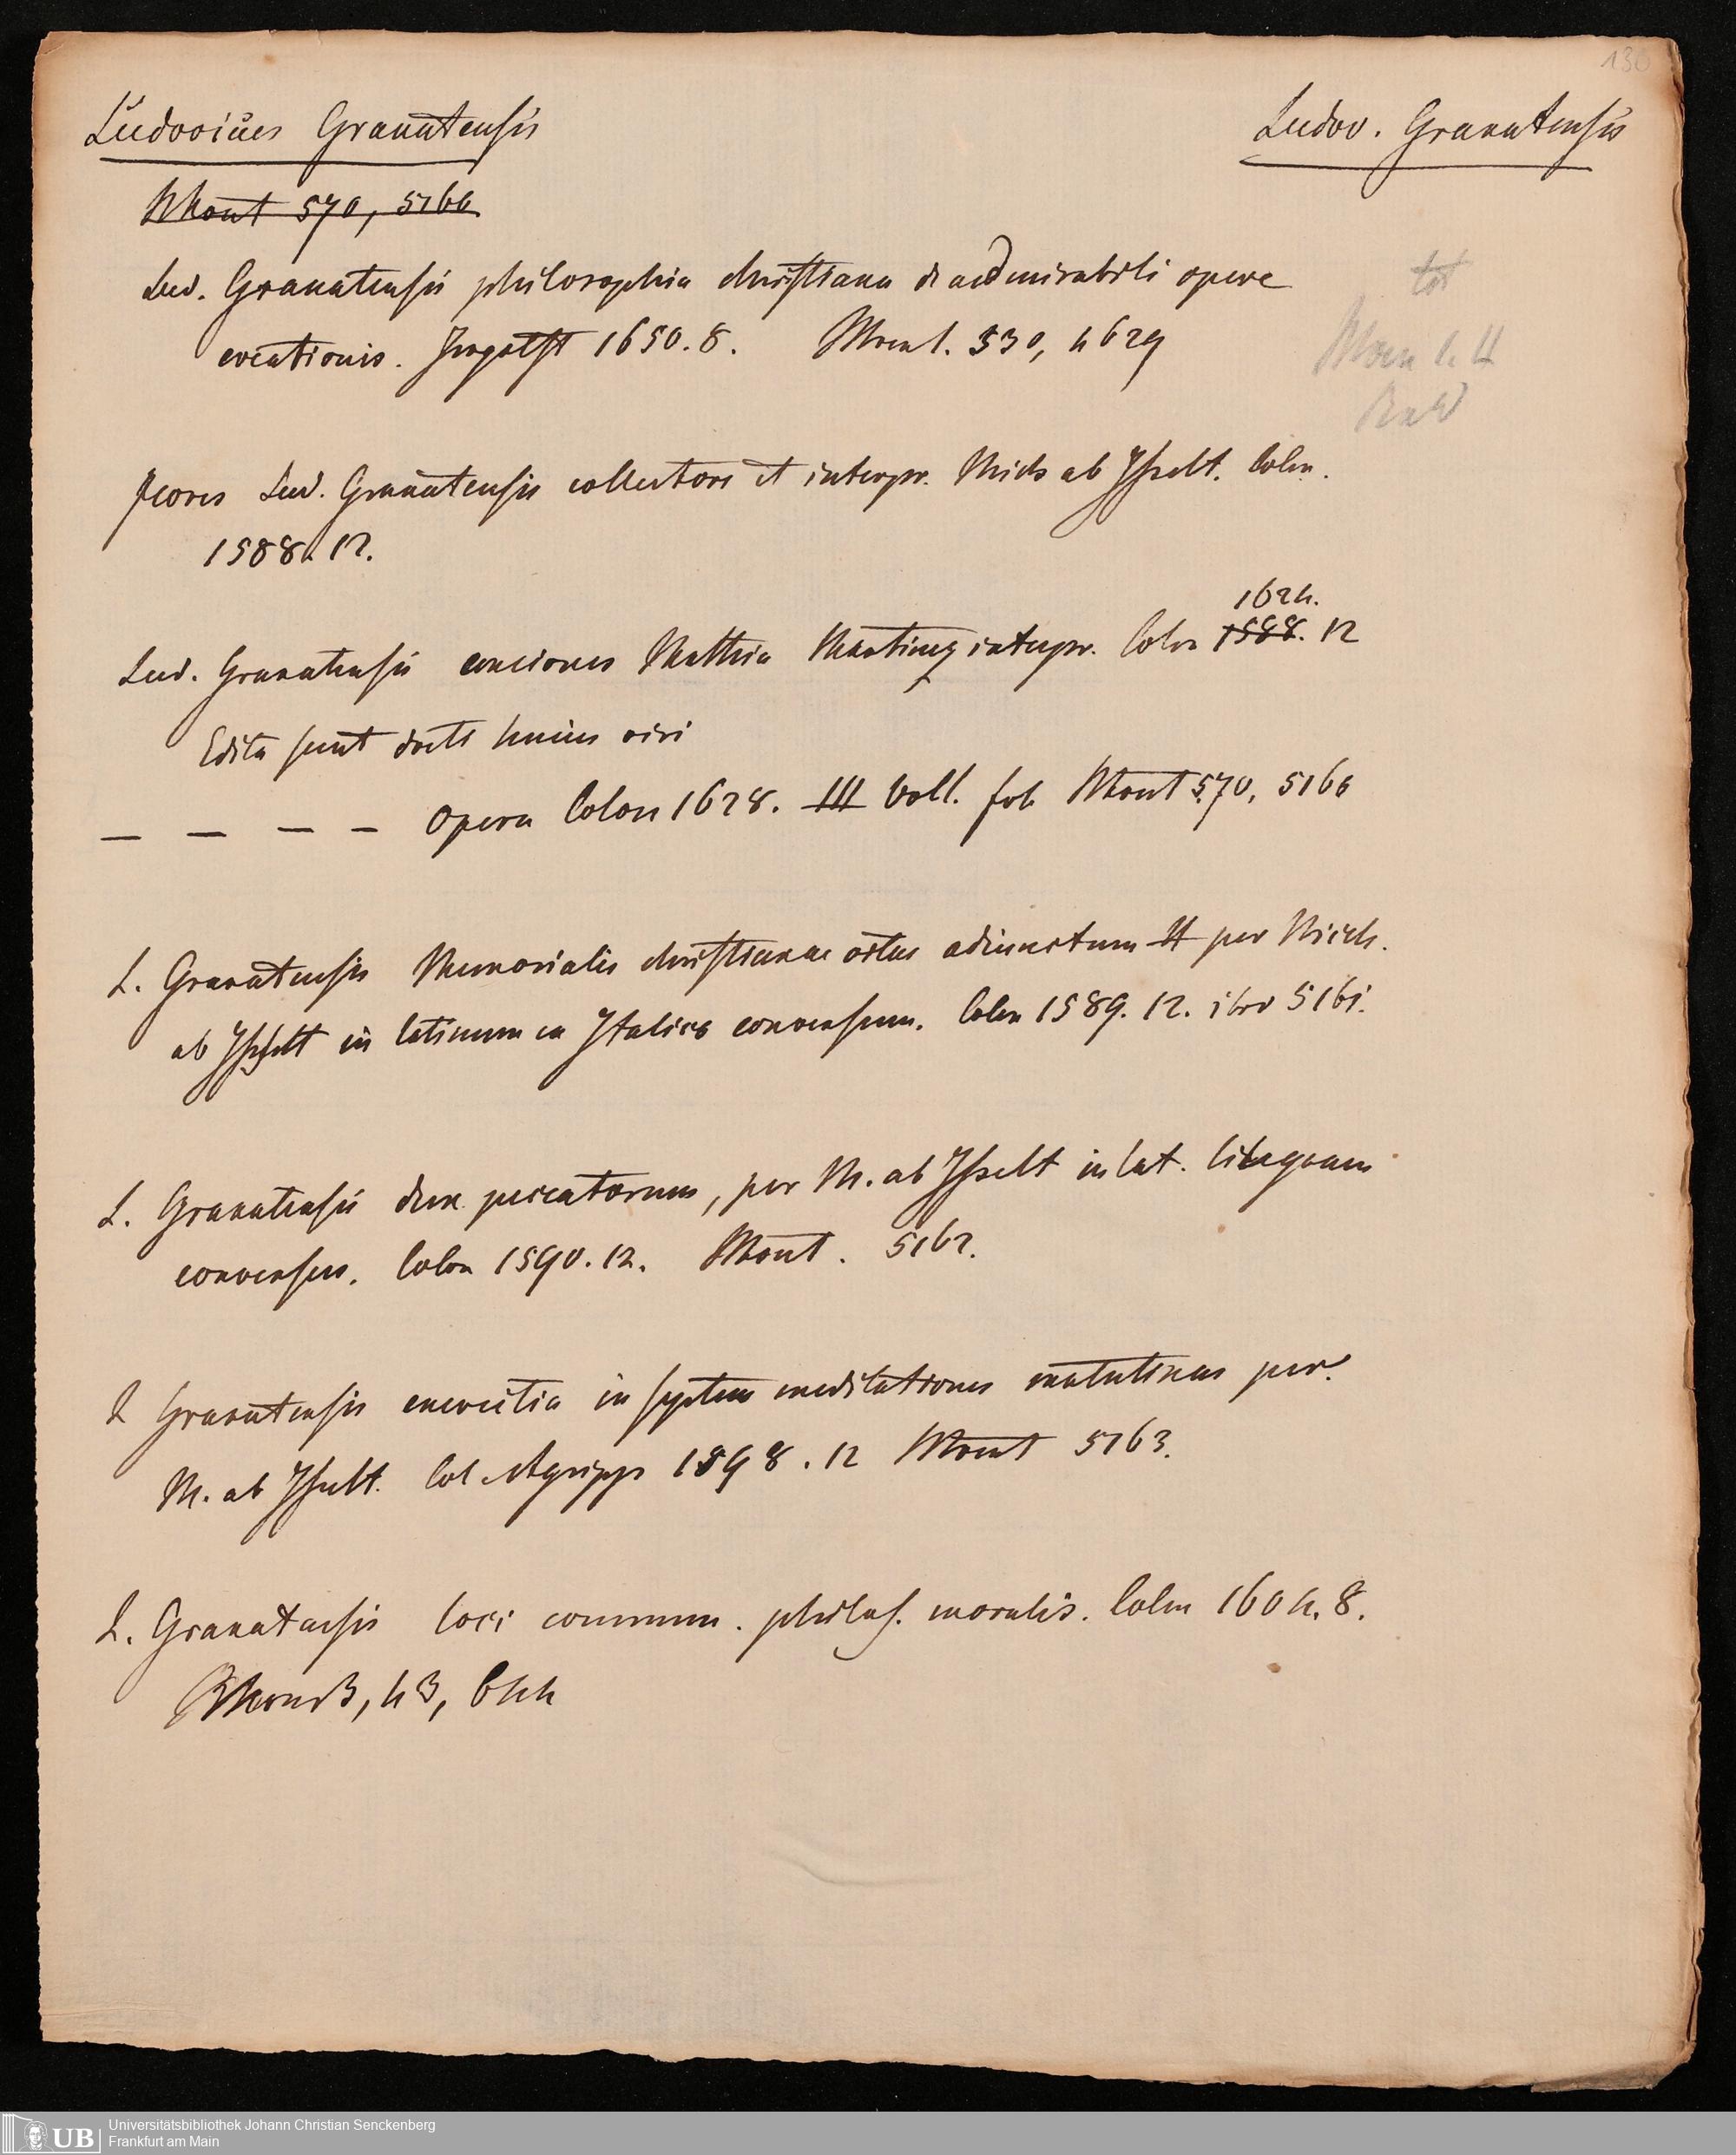 130
Ludovicus Granatensis
Ludov. Granatensis
Mont 570, 5166
Lud. Granatensis philosophia christiana de admirabili opere
creationis. Ingolst 1650. 8. Mont. 530, 4629
tot
Flores Lud. Granatensis collectore et interpr. Mich ab Isselt. Colon.
1588. 12.
1624.
Lud. Granatensis conciones Matthia Martinez interpr. Colon 1588. 12
Edita sunt docti huius viri
— — — — Opera Colon 1628. III Voll. fol Mont 570, 5166
L. Granatensis Memorialis christianae vitae adiunctum II per Mich.
ab Isselt in latinum ex Italico conversum. Colon 1589. 12. ibid 5161.
L. Granatensis dux peccatorum, per M. ab Isselt in lat. linguam
conversus. Colon 1590. 12. Mont. 5162.
L Granatensis exercitia in septem meditationes matutinas per
M. ab Isselt. Col Agripp 1598. 12 Mont 5163.
L. Granatensis loci commun. philos. moralis. Colon 1604. 8.
43, 644
UB
Universitätsbibliothek Johann Christian Senckenberg
Frankfurt am Main